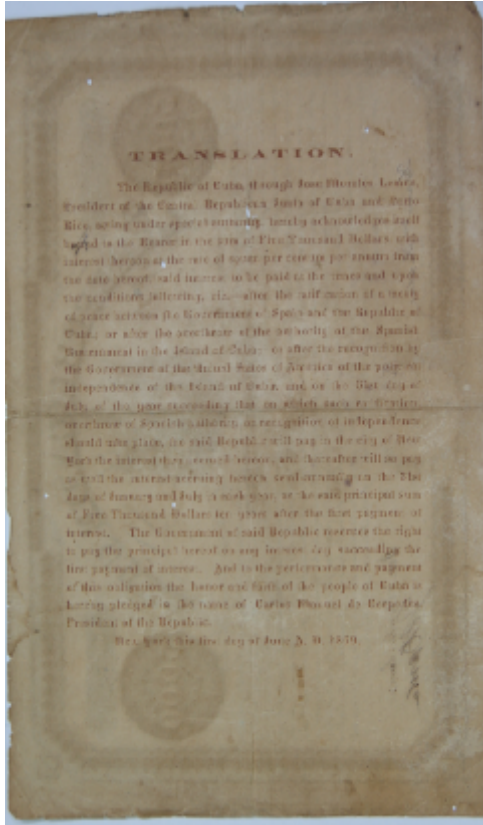 TRANSLATION.
The Republic of Cuba, through Jose Morales Lemus,
President of the Central Republican Junta of Cuba and Porto
Rico, acting under special authority, hereby acknowledges itself
bound to the Bearer in the sum of Five Thousand Dollars, with
interest thereon at the rate of seven per centum per annum from
the date hereof, said interest to be paid at the times and upon
the conditions following, viz.—after the ratification of a treaty
of peace between the Government of Spain and the Republic of
Cuba; or after the overthrow of the authority of the Spanish
Government in the Island of Cuba; or after the recognition by
the Government of the United States of America of the
independence of the Island of Cuba, and on the 31st day of
July of the year succeeding that on which such ratification,
overthrow of Spanish authority, or recognition of independence
should take place, the said Republic will pay in the city of New
York the interest then accrued hereon, and thereafter will so pay
the interest accruing hereon semi-annually on the 31st
days of January and July in each year, and the said principal sum
of Five Thousand Dollars ten years after the first payment of
interest. The Government of said Republic reserves the right
to pay the principal hereof on any interest day succeeding the
first payment of interest. And to the performance and payment
of this obligation the honor and faith of the people of Cuba is
hereby pledged in the name of Carlos Manuel de Cespedes,
President of the Republic.
New York this first day of June A. D. 1870.